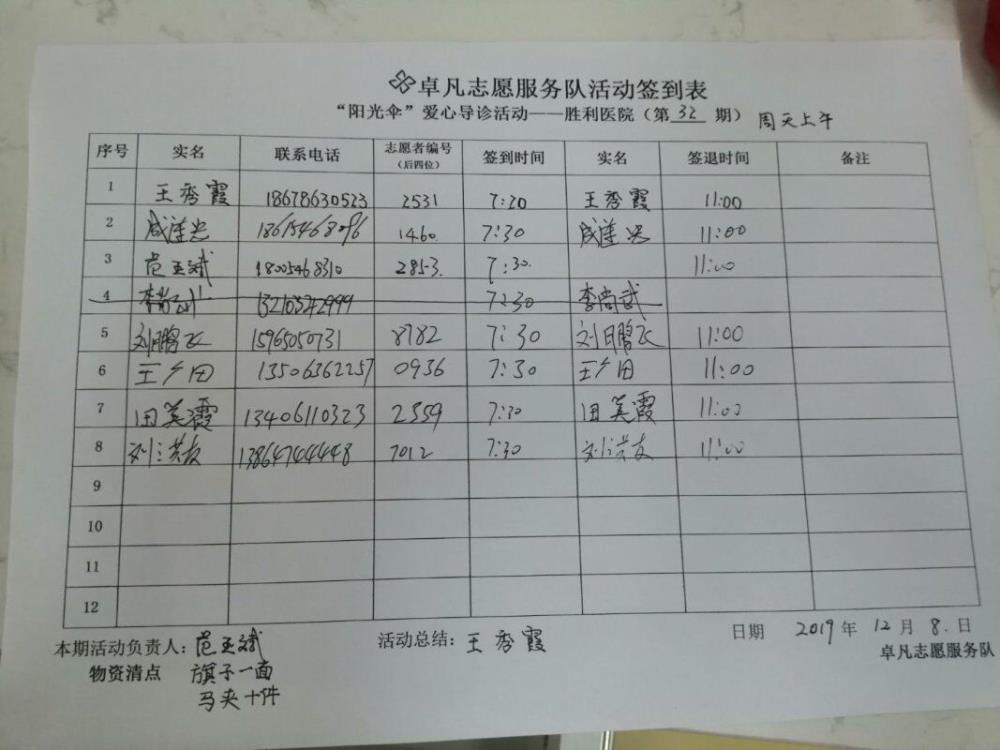 卓凡志愿服务队活动签到表
“阳光伞”爱心导诊活动——胜利医院（第 32 期） 周天上午
序号 实名 联系电话 志愿者编号（后四位） 签到时间 实名 签退时间 备注
1 王秀霞 18678630523 2531 7:20 王秀霞 11:00
2 1460 7:30 11:00
3 范玉斌 18005468310 2853 7:30 11:00
4 李尚武 13210342999 7:30 李尚武
5 刘鹏飞 15965050731 8782 7:30 刘鹏飞 11:00
6 王广田 13506362257 0936 7:30 王广田 11:00
7 田美霞 13406110323 2559 7:30 田美霞 11:00
8 刘洪友 13864744448 7012 7:30 刘洪友 11:00
9
10
11
12
本期活动负责人：范玉斌 活动总结：王秀霞 日期 2019年 12月 8.日
物资清点 旗子一面 卓凡志愿服务队
马夹十件